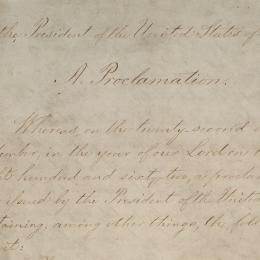 the President of the United States of
A Proclamation.
Whereas, on the twenty-second
in the year of our Lord one
hundred and sixty two, a proclam
issued by the President of the United
taining, among other things, the fol
it: